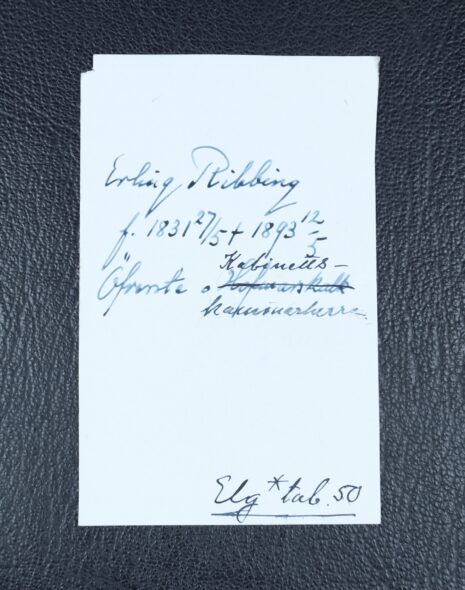 Erling Ribbing
f. 1831 27/5 † 1893 12/5
Kabinetts-
Öfverste o Hofmarskalk
kammarherre
Elg * tab. 50